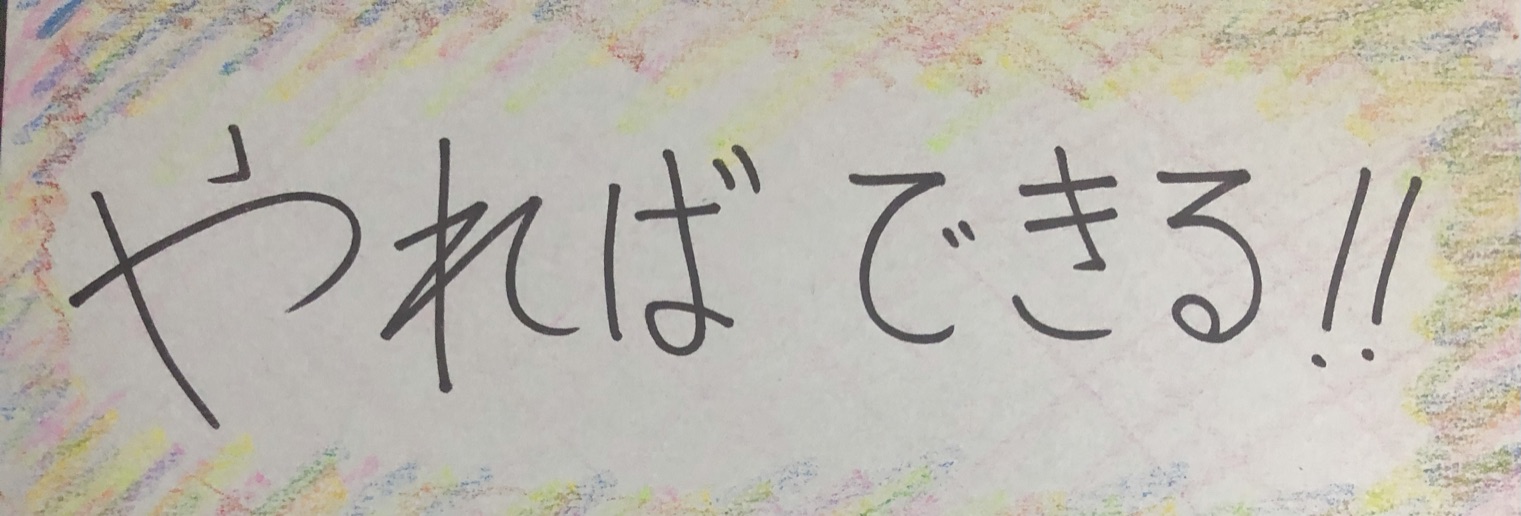 やればできる!!